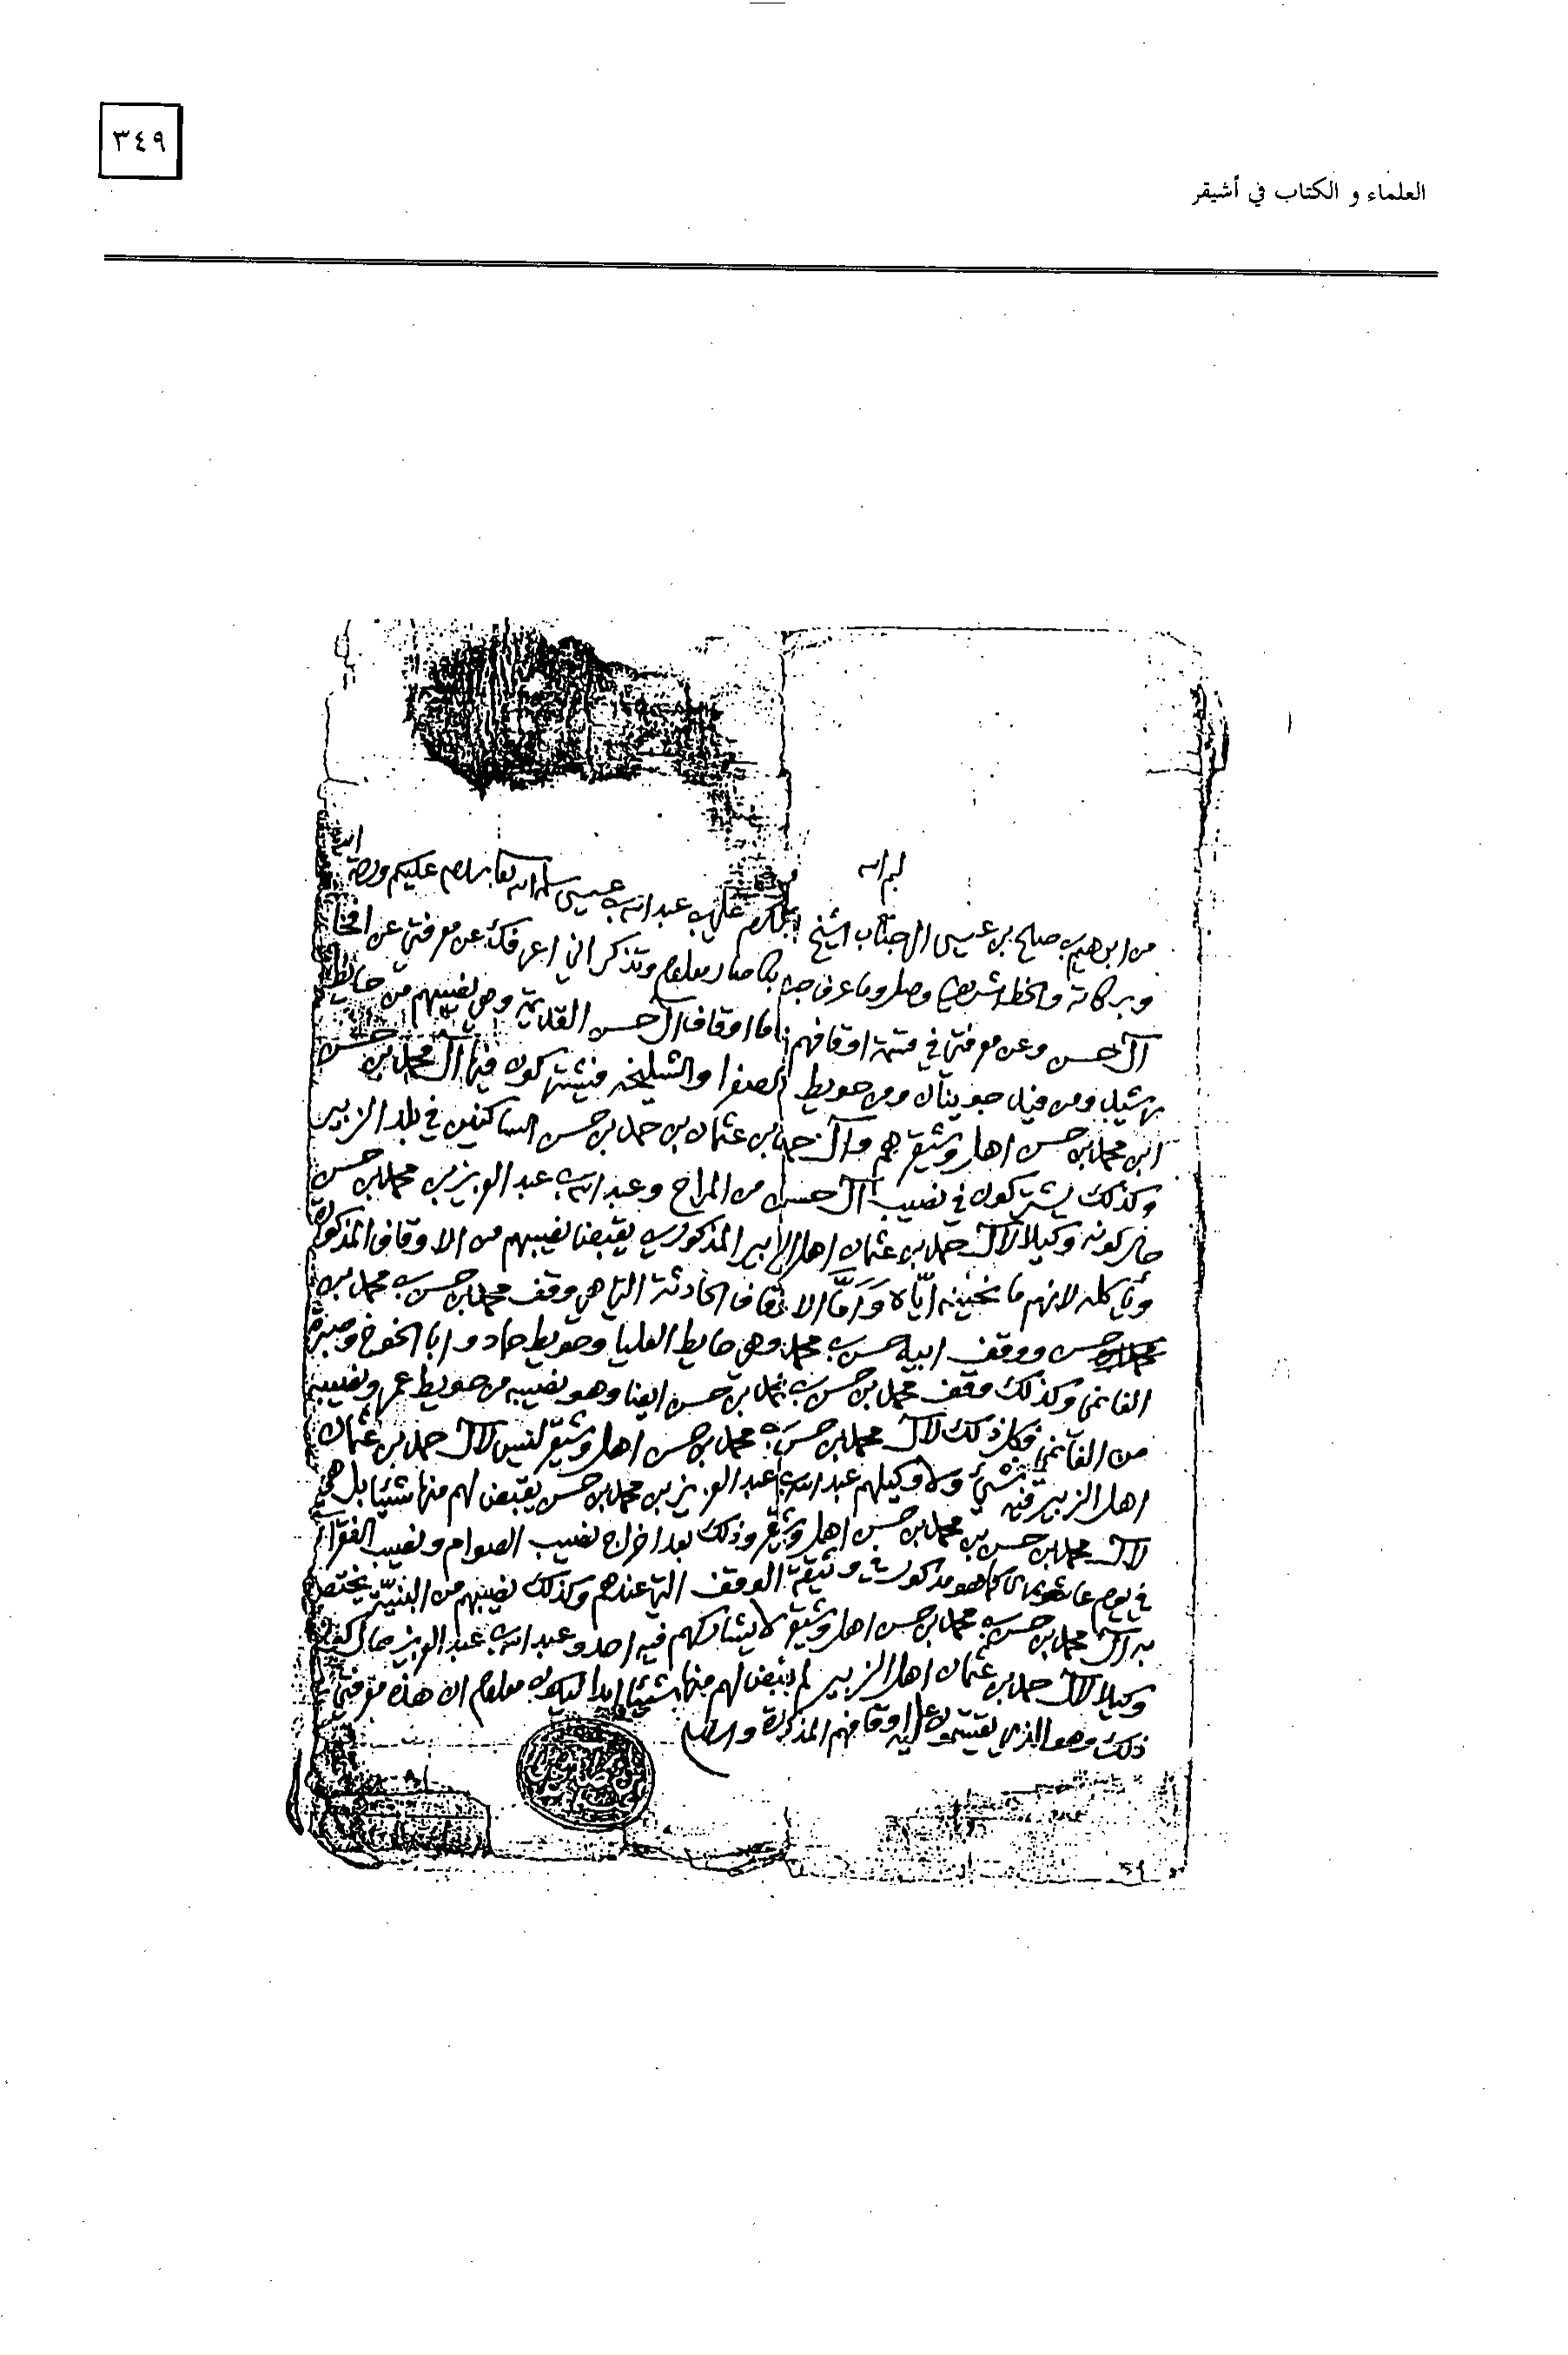 ٣٤٩
العلماء و الكتاب في أشيقر
بسم الله
من ابرهيم بن صالح بن عيسى الى جناب الشيخ المكرم علي بن عبد الله بن عيسى سلمه الله تعا سلام عليكم ورحمة الله
وبركاته والخط الشريف وصل وما عرفت جنابك صار معلوم وتذكر اني اعرفك عن معرفتي عن افخاذ
آل حسن وعن معرفتي في قسمة اوقافهم فاما اوقاف آل حسن القديمة وهي نصيبهم من حايط
بن حسن آل محمد فيها فيشتركون والشليخيه الصفرا حويط ومن
ابن محمد بن حسن اهل وشيقر هم وآل حمد بن عثمان بن حمد بن حسن الساكنين في بلد الزبير
وكذلك يشتركون في نصيب آل حسن من المراح وعبد الله بن عبد العزيز بن محمد بن حسن
حال كونه وكيلا لآل حمد بن عثمان اهل الزبير المذكورين يقبض نصيبهم من الاوقاف المذكورة
وياكله لانهم وأمّا الاوقاف الحادثة التي هي وقف محمد بن حسن بن محمد بن
حسن ووقف ابيه حسن بن محمد وهي حايط العليا وحويط حماد و ابا الخوخ وصبرة
الغانمي وكذلك وقف محمد بن حسن بن محمد بن حسن ايضا وهو نصيبه من حويط عمر ونصيبه
من الغانمي فكل ذلك لآل محمد بن حسن بن محمد بن حسن اهل وشيقر ليس لآل حمد بن عثمان
اهل الزبير فيه شيئ ولا وكيلهم عبد الله بن عبد العزيز بن محمد بن حسن يقبض لهم منها شيئا بل هي
لآل محمد بن حسن بن محمد بن حسن اهل وشيقر وذلك بعد اخراج نصيب الصوام ونصيب الفقرا
في يوم عاشوراء كما هو مذكور في وثيقة الوقف التي عندهم وكذلك نصيبهم من يختص
به آل محمد بن حسن بن محمد بن حسن اهل وشيقر لا يشاركهم فيه احد وعبد الله بن عبد العزيز حال كونه
وكيلا لآل حمد بن عثمان اهل الزبير لم يقبض لهم منها شيئا ابدا ليكون معلوم ان هذه معرفتي في
ذلك وهو الذي يقتسمون عليه اوقافهم المذكورة والسلام